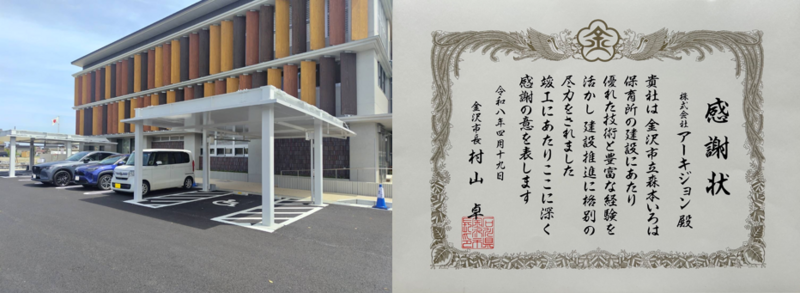 金
感謝状
株式会社アーキジョン 殿
貴社は 金沢市立森本いろは
保育所の建設にあたり
優れた技術と豊富な経験を
活かし 建設推進に格別の
尽力をされました
竣工にあたりここに深く
感謝の意を表します
令和八年四月十九日
金沢市長 村山 卓